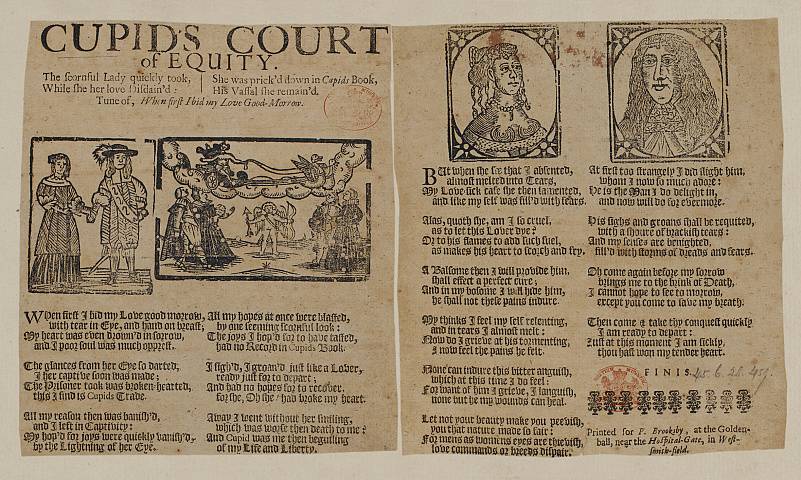 CUPIDS COURT
of EQUITY.
The scornful Lady quickly took,
While she her love Disdain'd:
She was prick'd down in Cupids Book,
His Vassal she remain'd.
Tune of, When first I bid my Love Good-Morrow.
WHen first I bid my Love good morrow,
with tear in Eye, and hand on breast;
My heart was even drown'd in sorrow,
and I poor soul was much opprest.
The glances from her Eye so darted,
I her captive soon was made;
The Prisoner took was broken-hearted,
this I find is Cupids Trade.
All my reason then was banish'd,
and I left in Captivity:
My hop'd for joys were quickly vanish'd,
by the Lightning of her Eye.
All my hopes at once were blasted,
by one seeming scornful look:
The joys I hop'd for to have tasted,
had no Record in Cupids Book.
I sigh'd, I groan'd just like a Lover,
ready just for to depart;
And had no hopes for to recover,
for she, Oh she had broke my heart.
Away I went without her smiling,
which was worse then death to me?
And Cupid was me then beguiling
of my Life and Liberty.
BUt when she see that I absented,
almost melted into Tears,
My Love-sick case she then lamented,
and like my self was fill'd with fears.
Alas, quoth she, am I so cruel,
as to let this Lover dye?
Or to his flames to add such fuel,
as makes his heart to scorch and fry.
A Balsome then I will provide him,
shall effect a perfect cure;
And in my bosome I will hide him,
he shall not these pains indure.
My thinks I feel my self relenting,
and in tears I almost melt:
Now do I grieve at his tormenting,
I now feel the pains he felt.
None can indure this bitter anguish,
which at this time I do feel:
For want of him I grieve, I languish,
none but he my wounds can heal.
Let not your beauty make you peevish,
you that nature made so fair:
For mens as womens eyes are thievish,
love commands or breeds dispair.
At first too strangely I did slight him,
whom I now so much adore:
He is the Man I do delight in,
and now will do for evermore.
His sighs and groans shall be requited,
with a showre of brackish tears:
And my senses are benighted,
fill'd with storms of dreads and fears.
Oh come again before my sorrow
brings me to the brink of Death,
I cannot hope to see to morrow,
except you come to save my breath.
Then come & take thy conquest quickly
I am ready to depart:
Just at this moment I am sickly,
thou hast won my tender heart.
FINIS.
Printed for P. Brooksby, at the Golden-
ball, near the Hospital-Gate, in West-
smith-field.